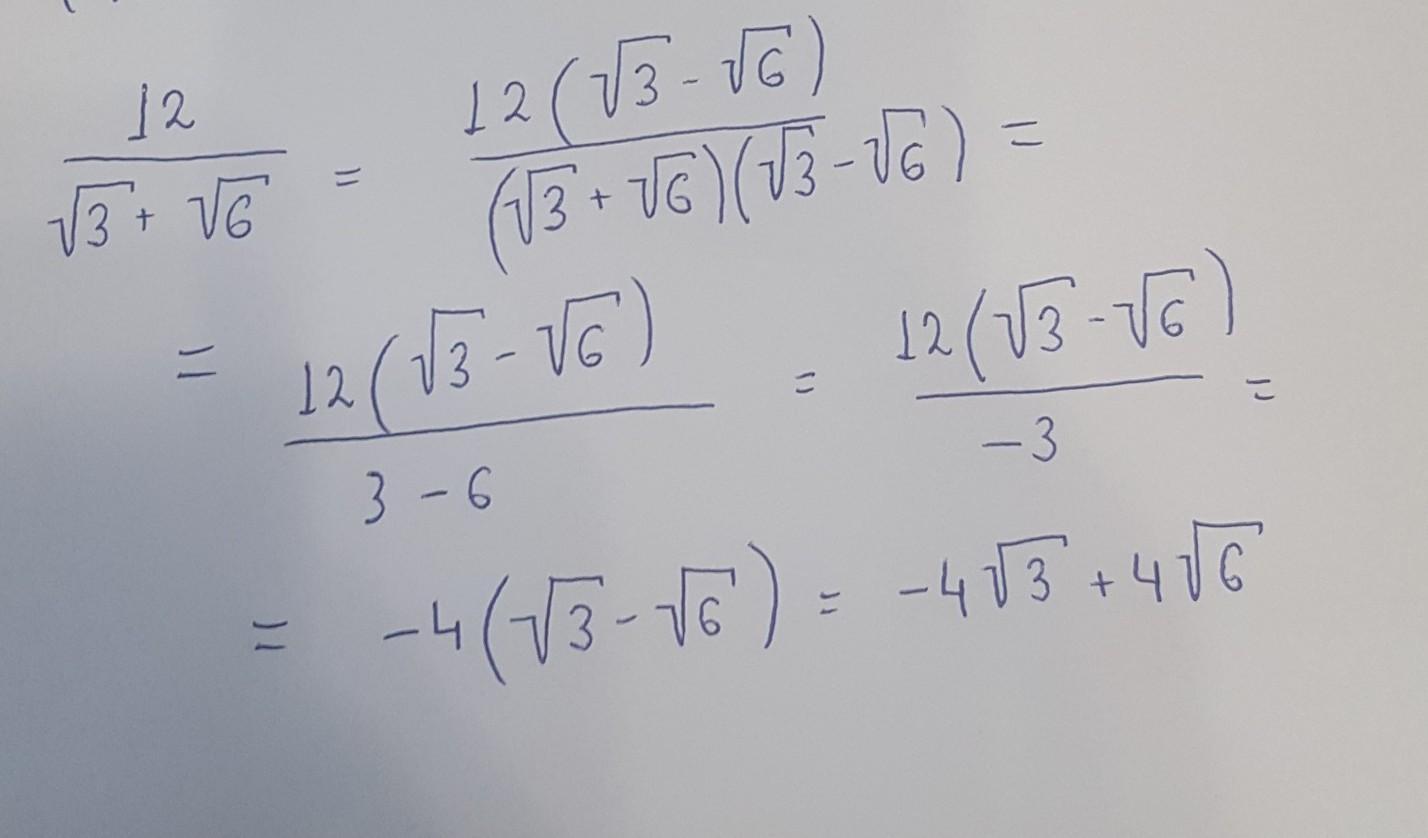 12/(√3 + √6) = 12(√3 - √6)/((√3 + √6)(√3 - √6)) =
= 12(√3 - √6)/(3 - 6) = 12(√3 - √6)/(-3) =
= -4(√3 - √6) = -4√3 + 4√6